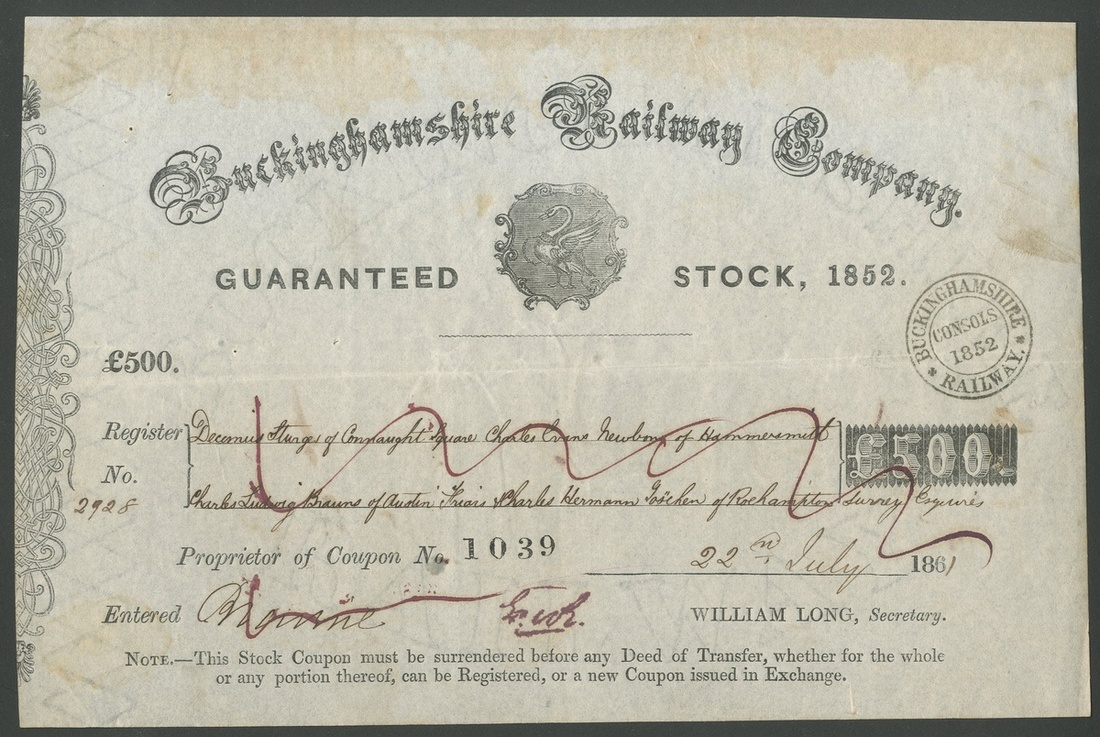 Buckinghamshire Railway Company.
GUARANTEED STOCK, 1852.
BUCKINGHAMSHIRE RAILWAY.
CONSOLS
1852
£500.
Register Decemus Sturges of Connaught Square Charles Evans Newbon of Hammersmith
£500
No.
2928 Charles Ludwig Brauns of Austin Friars & Charles Hermann Göschen of Roehampton Surrey Esquires
Proprietor of Coupon No. 1039 22nd July 1861
Entered WILLIAM LONG, Secretary.
NOTE.—This Stock Coupon must be surrendered before any Deed of Transfer, whether for the whole
or any portion thereof, can be Registered, or a new Coupon issued in Exchange.